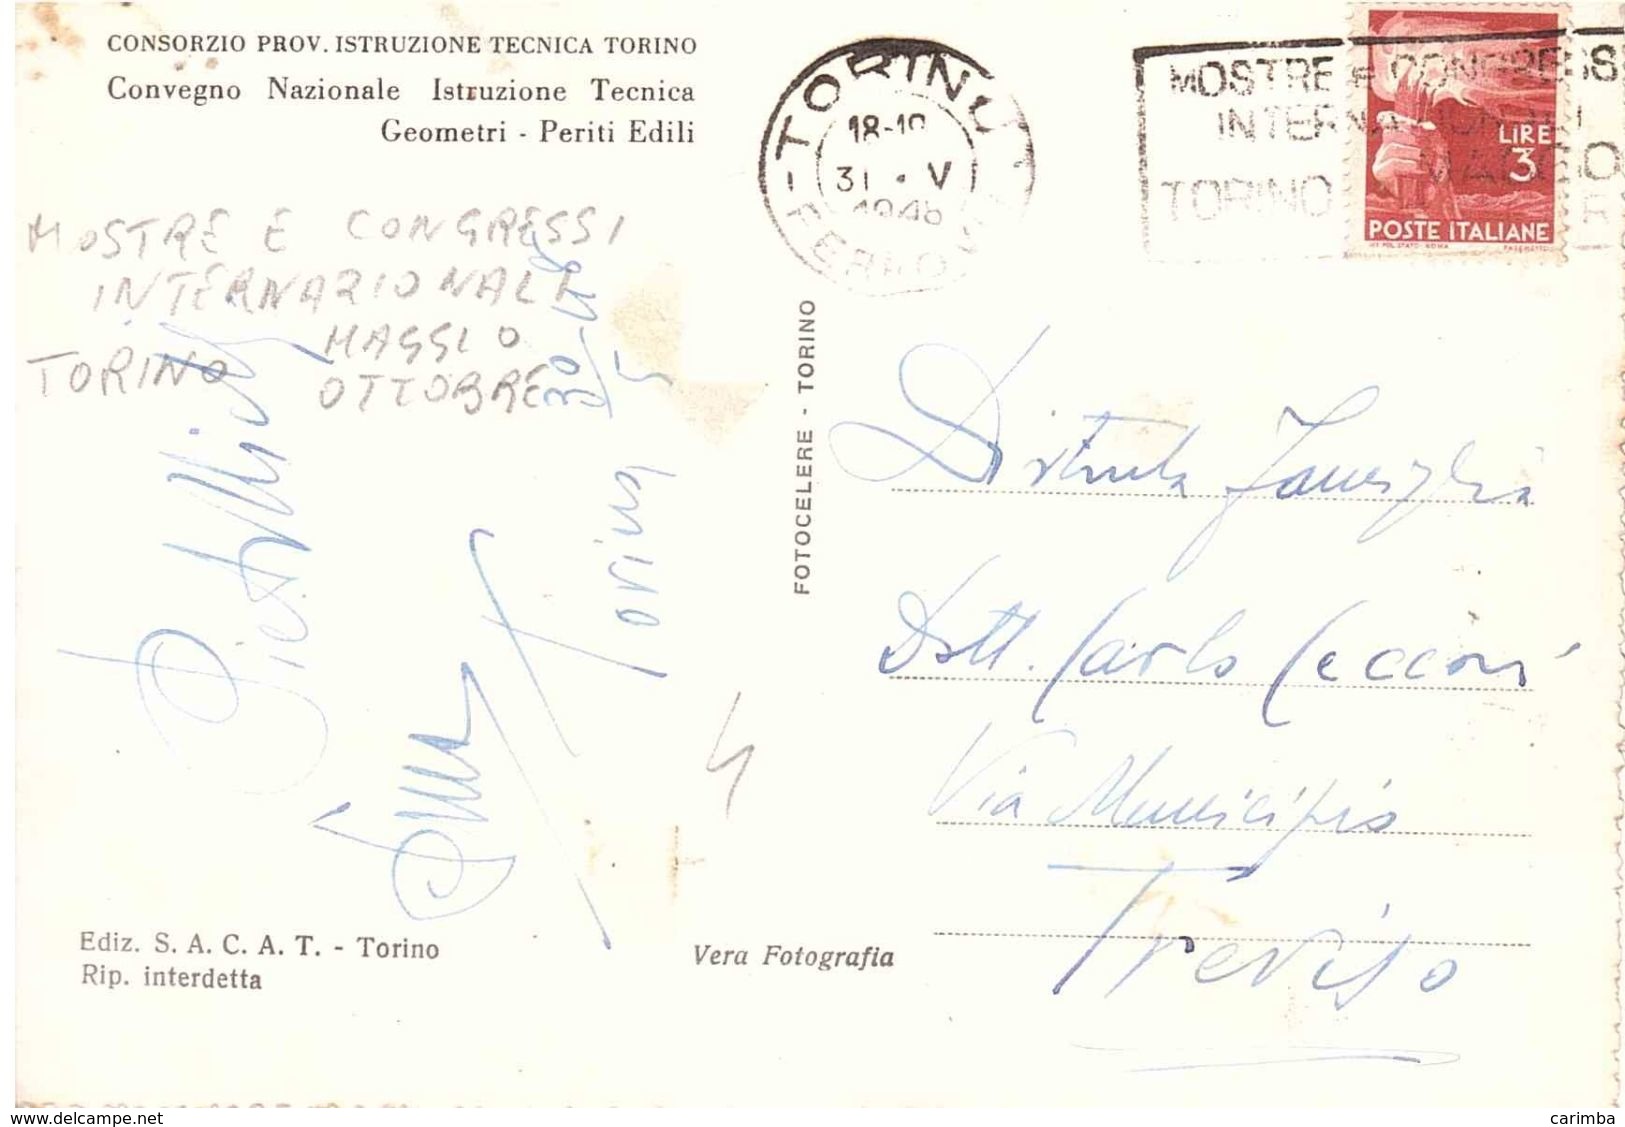 CONSORZIO PROV. ISTRUZIONE TECNICA TORINO
Convegno Nazionale Istruzione Tecnica
Geometri - Periti Edili
MOSTRE E CONGRESSI
INTERNAZIONALI
MAGGIO
TORINO OTTOBRE
30-5-48
Torino
TORINO
18-19
31 · V
1948
FERROVIA
MOSTRE E CONGRESSI
INTERNAZIONALI
MAGGIO
TORINO
LIRE
3
POSTE ITALIANE
FOTOCELERE - TORINO
Distinta Famiglia
Dott. Carlo Cecconi
Via Municipio
Treviso
4
Ediz. S. A. C. A. T. - Torino
Rip. interdetta
Vera Fotografia
www.delcampe.net
carimba